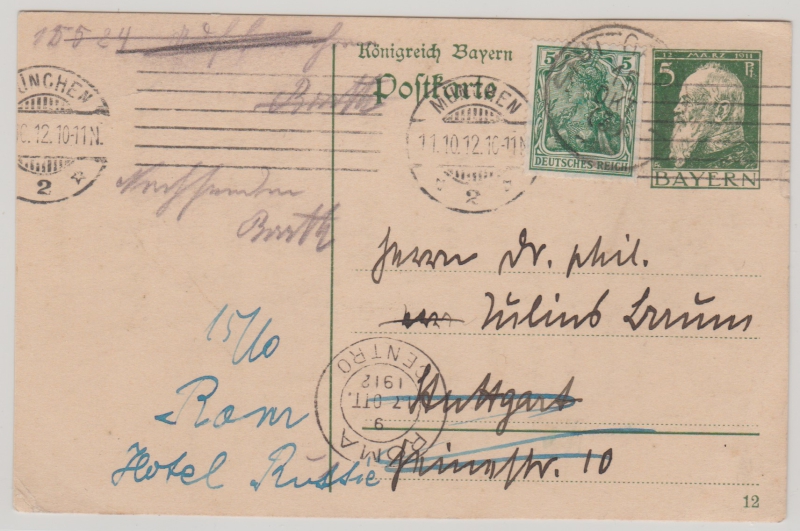 15 5 24
Königreich Bayern
Postkarte
Barth
MÜNCHEN
10.12.10-11 N.
2
MÜNCHEN
11.10.12.10-11 N
2
5 5
DEUTSCHES REICH
12. MÄRZ 1911
5 Pf
BAYERN
Nachsenden
Barth
Herrn Dr. phil.
Julius Baum
Stuttgart
str. 10
15/10
Rom
Hotel Russie
ROMA
CENTRO
17 OTT.
1912
9
12